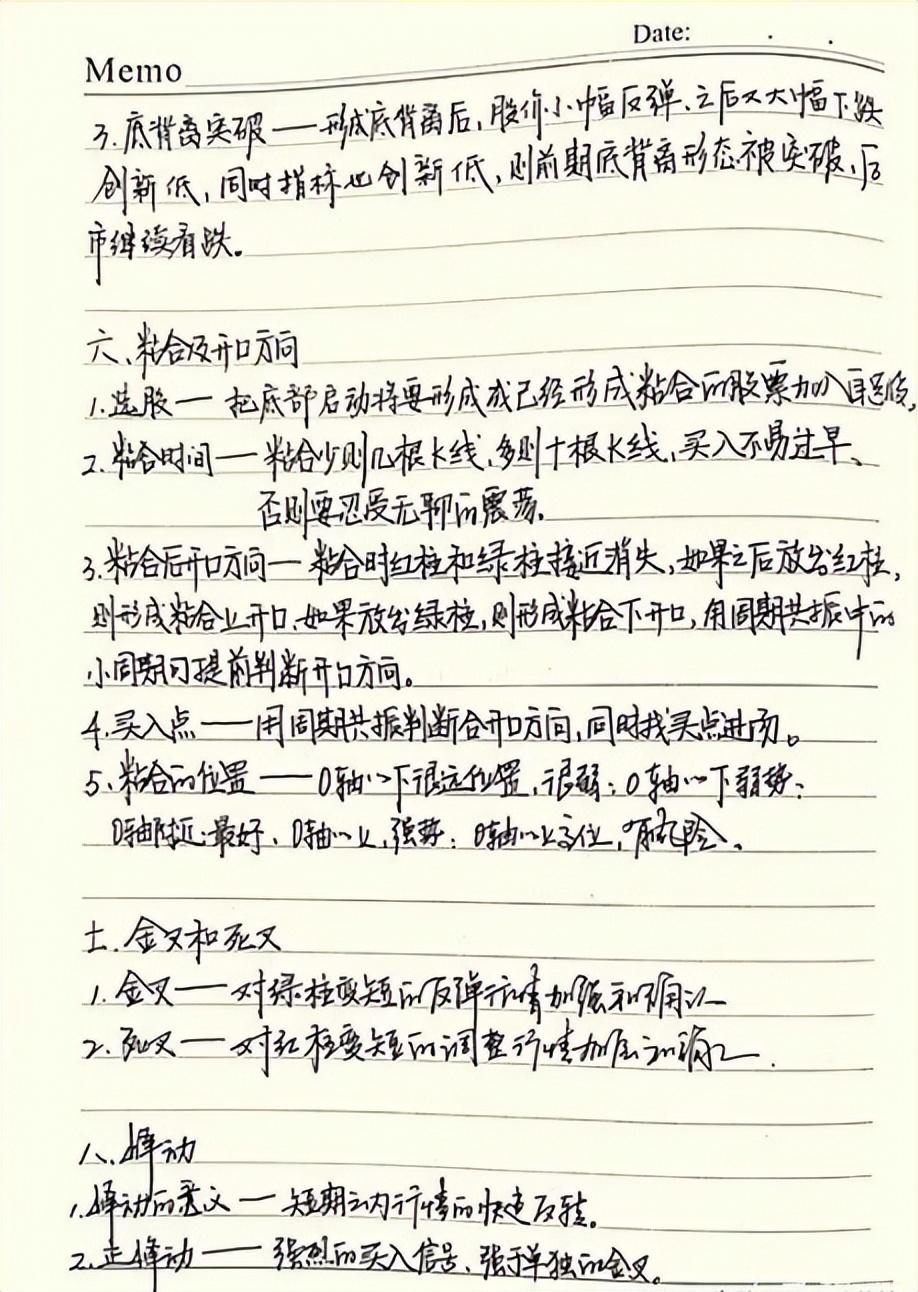 Date: . .
Memo
3.底背离突破——形成底背离后,股价小幅反弹、之后又大幅下跌
创新低,同时指标也创新低,则前期底背离形态被突破,后
市继续看跌。
六、粘合及开口方向
1.选股—把底部启动将要形成或已经形成粘合的股票加入自选股,
2.粘合时间——粘合少则几根K线,多则十根K线,买入不易过早、
否则要忍受无聊的震荡.
3.粘合后开口方向—粘合时红柱和绿柱接近消失,如果之后放出红柱,
则形成粘合上开口、如果放出绿柱,则形成粘合下开口,用周期共振中的
小周期可提前判断开口方向。
4.买入点——用周期共振判断合开口方向,同时找买点进场。
5.粘合的位置——0轴以下很远位置,很弱;0轴以下弱势;
0轴附近:最好、0轴以上,强势;0轴以上高位,有风险、
七.金叉和死叉
1.金叉——对绿柱变短的反弹行情加强和确认
2.死叉——对红柱变短的调整行情加 和确认.
八、 动
1. 动的意义—短期之内行情的快速反转。
2.正 动——强烈的买入信号、强于单独的金叉。